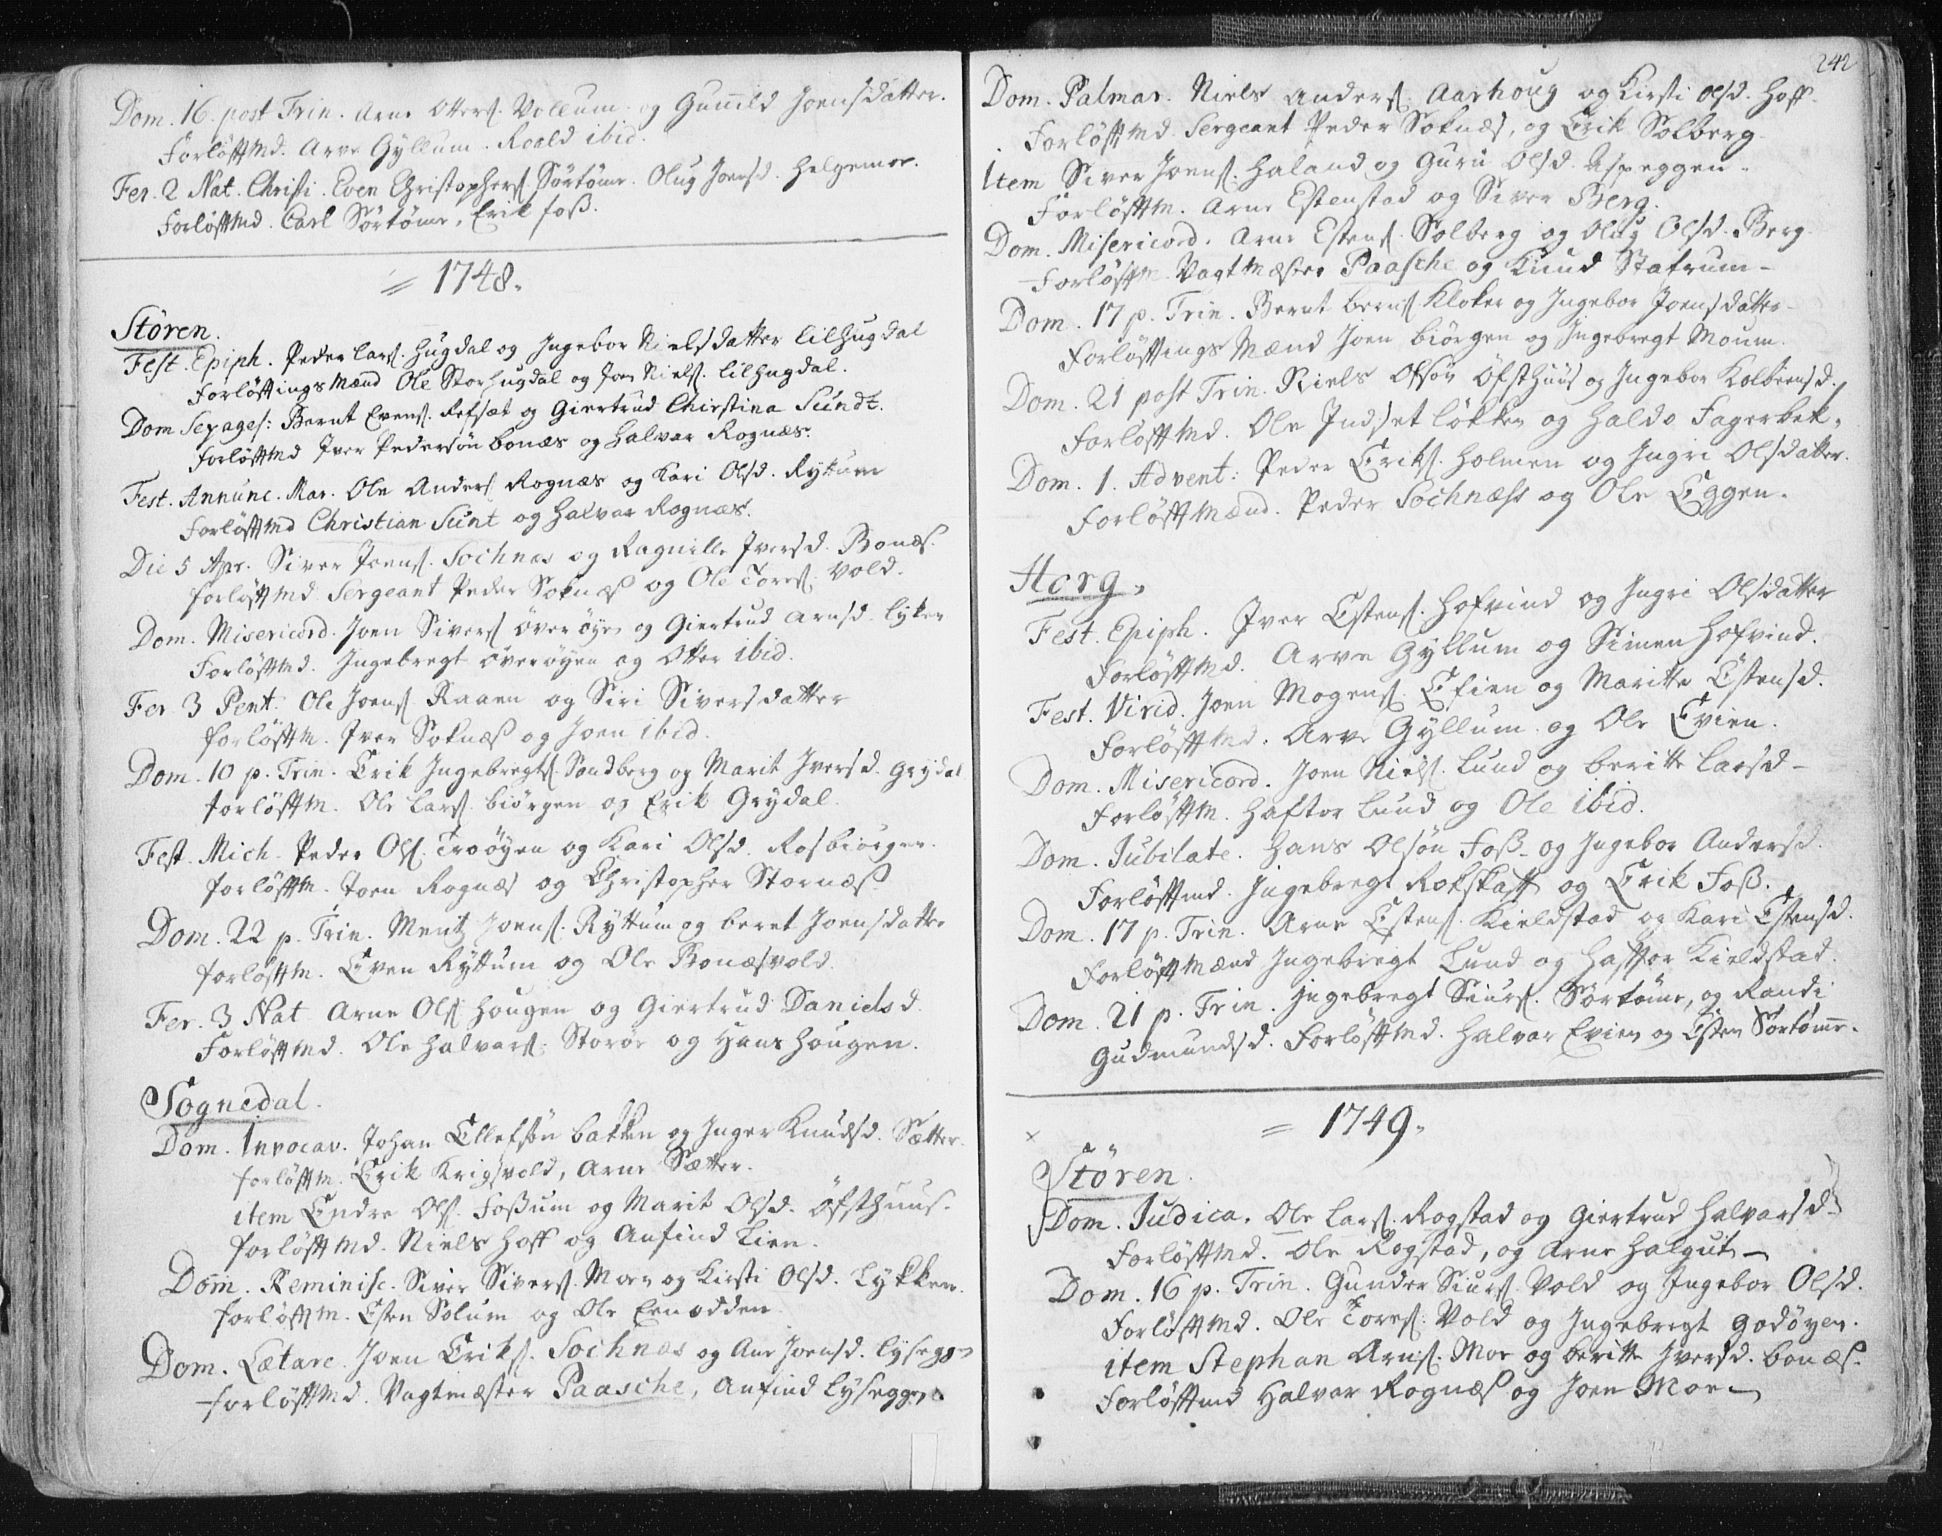 Dom. 16. post Trin. Arne Otters. Vollum og Gunnild Joensdatter.
Forløfftmd. Arve Gyllum. Roald ibid.
Fer. 2 Nat. Christi. Even Christophers. Sörtömr. Olug Joensd. Helgemor.
Forløfftmd. Carl Sörtömr, Erik Foß.
= 1748.
Stören.
Fest. Epiph. Peder Lars. Hugdal og Ingebor Nielsdatter Lilhugdal
Forløfftings Mænd Ole Storhugdal og Joen Niels. Lilhugdal.
Dom Sexages: Bernt Evens. Refsæt og Giertrud Christina Sundt.
Forløfftmd Iver Pedersøn Bonæs og Halvar Rognæs.
Fest. Annunc. Mar. Ole Anders Rognæs og Kari Olsd. Ryttum
Forløfftmd Christian Sunt og Halvar Rognæs.
Die 5 Apr. Siver Joens. Sochnæs og Ragnille Iversd. Bonæs.
forløfftmd Sergeant Peder Soknæs og Ole Tores. Vold.
Dom. Misericord. Joen Sivers Överöyen og Giertrud Arnsd. Lyker
Forløfftmd. Ingebregt Överöyen og Otter ibid.
Fer 3 Pent. Ole Joens Raaen og Siri Siversdatter
forløfftm. Iver Soknæs og Joen ibid.
Dom. 10 p. Trin. Erik Ingebregts. Sandberg og Marit Iversd. Grydal
forløfftm. Ole Lars. Biörgen og Erik Grydal.
Fest. Mich. Peder Ols. Trööyen og Kari Olsd. Rosbiörgen.
forløfftm. Joen Rognæs og Christopher Stornæs.
Dom. 22 p. Trin. Mentz Joens. Ryttum og Beret Joensdatter
forløfftm. Even Ryttum og Ole Bonæsvold.
Fer. 3 Nat. Arne Ols Hougen og Giertrud Danielsd.
Forløfftmd. Ole Halvars. Storöe og Hans Hougen.
Sognedal.
Dom. Invocav. Johan Ellefsön Bakken og Inger Knudsd. Sætter.
forløfftm. Erik Krigsvold, Arne Sætter.
item Endre Ols. Foßum og Marit Olsd. Öfsthuus.
forløfftmd. Niels Hoff og Anfind Lien.
Dom. Reminisc. Siver Sivers. Moen og Kirsti Olsd. Lykken.
forløfftm. Esten Solum og Ole Enodden.
Dom. Lætare. Joen Eriks. Sochnæs og Ane Joensd. Lyseggen
forløfftmd. Vagtmæster Paasche, Anfind Lyseggen.
242
Dom. Palmar. Niels Anders. Aarhoug og Kirsti Olsd. Hoff.
Forløfftmd. Sergeant Peder Soknæs, og Erik Solberg.
Item Siver Joens. Haland og Guru Olsd. Aspeggen.
Forløfftm. Arne Estenstad og Siver Berg.
Dom. Misericord. Arne Estens. Solberg og Olug Olsd. Berg.
Forløfftm. Vagtmæster Paasche og Knud Stafrum.
Dom. 17 p. Trin. Bernt Berns. Kloker og Ingebor Joensdatter
Forløfftings Mænd Joen Biörgen og Ingebregt Moum.
Dom. 21 post Trin. Niels Olsön Öfsthuus og Ingebor Kolbeensd.
Forløfftmd. Ole Indsetløkken og Haldo Fagerbek.
Dom. 1. Advent: Peder Eriks. Holmen og Ingri Olsdatter.
Forløfftmænd. Peder Sochnæss og Ole Eggen.
Horg.
Fest. Epiph. Iver Estens. Hofvind og Ingri Olsdatter
Forløfftmd. Arve Gyllum og Simen Hofvind.
Fest. Virid. Joen Mogens. Efien og Maritte Estensd.
Forløfftmd. Arve Gyllum og Ole Evien.
Dom. Misericord. Joen Niels. Lund og Beritte Larsd.
Forløfftm. Haftor Lund og Ole ibid.
Dom. Jubilate. Hans Olsön Foß og Ingebor Andersd.
Forløfftmd. Ingebregt Rokskaft og Erik Foß.
Dom. 17 p. Trin. Arne Estens. Kieldstad og Kari Estensd.
Forløfftmænd Ingebregt Lund og Hafftor Kieldstad.
Dom. 21 p. Trin. Ingebregt Siurs. Sörtömr, og Randi
Gudmundsd. Forløfftmd. Halvar Evien og Esten Sörtömr.
= 1749.
Stören.
Dom. Judica. Ole Lars. Rogstad og Giertrud Halvarsd.
Forløfftmd. Ole Rogstad, og Arne Halgut
Dom. 16 p. Trin. Gunder Siurs. Vold og Ingebor Olsd.
Forløfftmd. Ole Tores. Vold og Ingebregt Godöyen.
item Stephan Arns. Moe og Beritte Iversd. Bonæs.
Forløfftmd Halvar Rognæs og Joen Moe